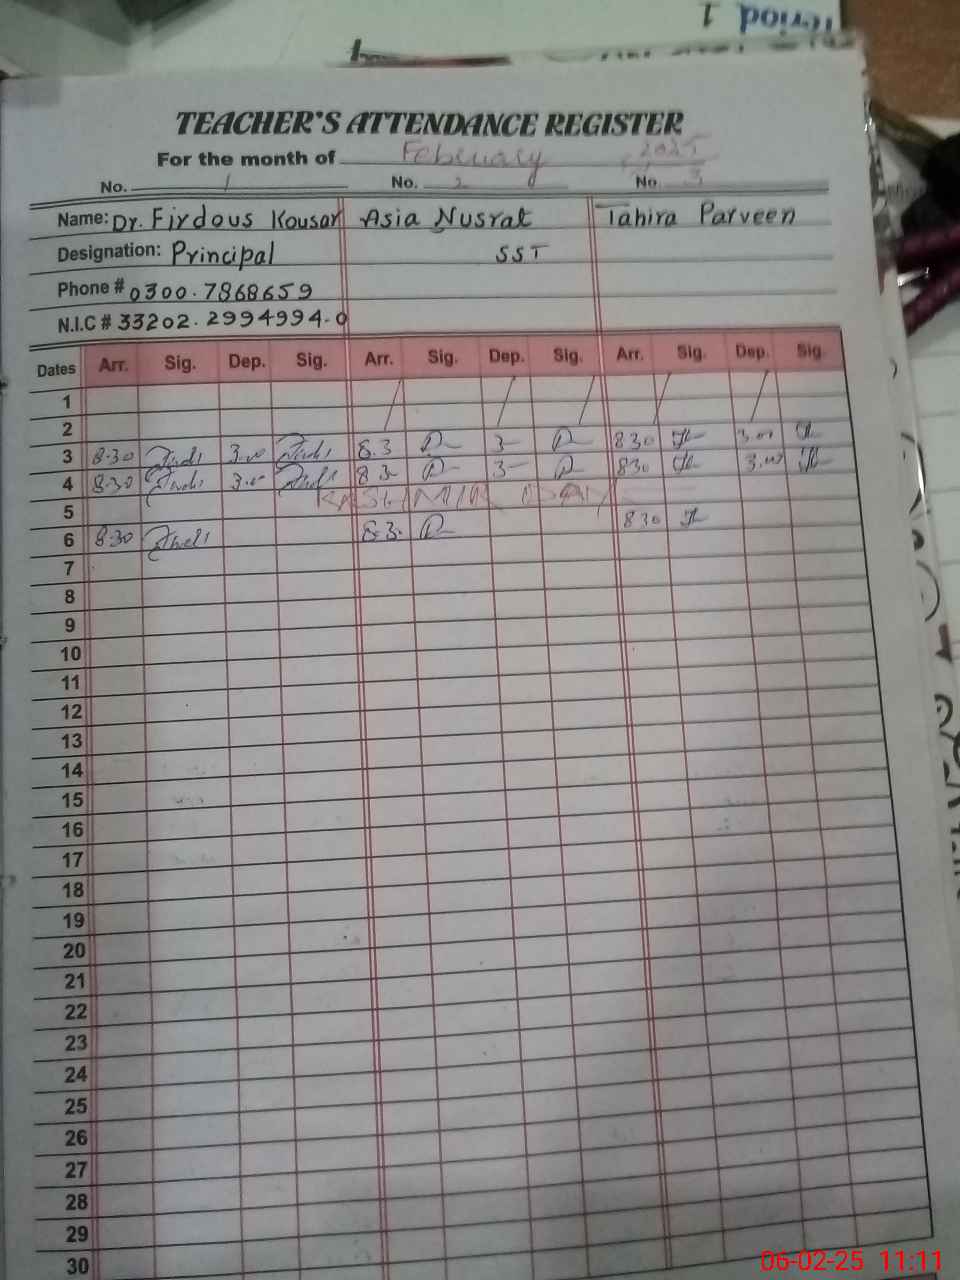 Period 1
TEACHER'S ATTENDANCE REGISTER
For the month of February 2025
No. 1 No. 2 No. 3
Name: Dr. Firdous Kousar Asia Nusrat Tahira Parveen
Designation: Principal SST
Phone # 0300.7868659
N.I.C # 33202.2994994-0
Dates Arr. Sig. Dep. Sig. Arr. Sig. Dep. Sig. Arr. Sig. Dep. Sig.
1
2
3 8.30 3.00 8.3 3- 8.30 3.00
4 8.30 3.00 8.3- 3- 8.30 3.00
5 KASHMIR DAY
6 8.30 8.3. 8.30
7
8
9
10
11
12
13
14
15
16
17
18
19
20
21
22
23
24
25
26
27
28
29
30
06-02-25 11:11